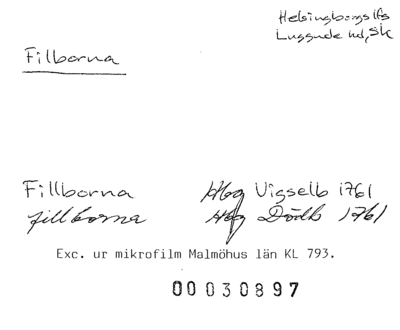 Helsingborgs lfs
Luggude hd, Sk
Fillborna
Fillborna Hbg Vigselb 1761
fillborna Hbg Dödb 1761
Exc. ur mikrofilm Malmöhus län KL 793.
00030897